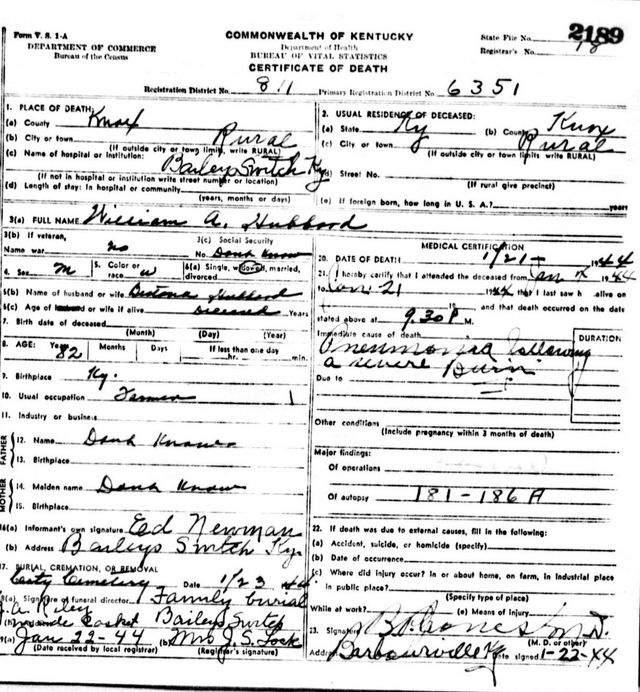 Form V. S. 1-A
DEPARTMENT OF COMMERCE
Bureau of the Census
COMMONWEALTH OF KENTUCKY
Department of Health
BUREAU OF VITAL STATISTICS
CERTIFICATE OF DEATH
2189
State File No.
Registrar's No. 18
Registration District No. 811 Primary Registration District No. 6351
1. PLACE OF DEATH:
(a) County Knox
(b) City or town Rural
(If outside city or town limits, write RURAL)
(c) Name of hospital or institution: Baileys Switch Ky
(If not in hospital or institution write street number or location)
(d) Length of stay: In hospital or community
(years, months or days)
2. USUAL RESIDENCE OF DECEASED:
(a) State Ky (b) County Knox
(c) City or town Rural
(If outside city or town limits write RURAL)
(d) Street No.
(If rural give precinct)
(e) If foreign born, how long in U. S. A.? years
3(a) FULL NAME William A. Hubbard
3(b) If veteran, 3(c) Social Security
Name war no No. Dank Know
4. Sex M 5. Color or race w 6(a) Single, widowed, married, divorced
6(b) Name of husband or wife Hubbard
6(c) Age of husband or wife if alive deceased Years
7. Birth date of deceased
(Month) (Day) (Year)
8. AGE: Years 82 Months Days If less than one day
hr. min.
9. Birthplace Ky.
10. Usual occupation Farmer
11. Industry or business
FATHER
12. Name Dank Know
13. Birthplace
MOTHER
14. Maiden name Dank Know
15. Birthplace
16(a) Informant's own signature Ed Newman
(b) Address Baileys Switch Ky
17. BURIAL, CREMATION, OR REMOVAL
Cemetery Date 1/23 44
18(a) Signature of funeral director Family burial
J.A. Riley
made Casket Baileys Switch
19(a) Jan 22-44 (b) Mrs J. S. Lock
(Date received by local registrar) (Registrar's signature)
MEDICAL CERTIFICATION
20. DATE OF DEATH 1/21- 1944
21. I hereby certify that I attended the deceased from Jan 1944
to Jan 21 1944 that I last saw h alive on
19 and that death occurred on the date
stated above at 9.30 P M.
Immediate cause of death
Pneumonia following
a severe Burn
DURATION
Due to
Other conditions
(Include pregnancy within 3 months of death)
Major findings:
Of operations
Of autopsy 181-186A
22. If death was due to external causes, fill in the following:
(a) Accident, suicide, or homicide (specify)
(b) Date of occurrence
(c) Where did injury occur? In or about home, on farm, in industrial place
in public place?
(Specify type of place)
While at work? (e) Means of injury
23. Signature
(M. D. or other)
Address Barbourville Ky Date signed 1-22-44